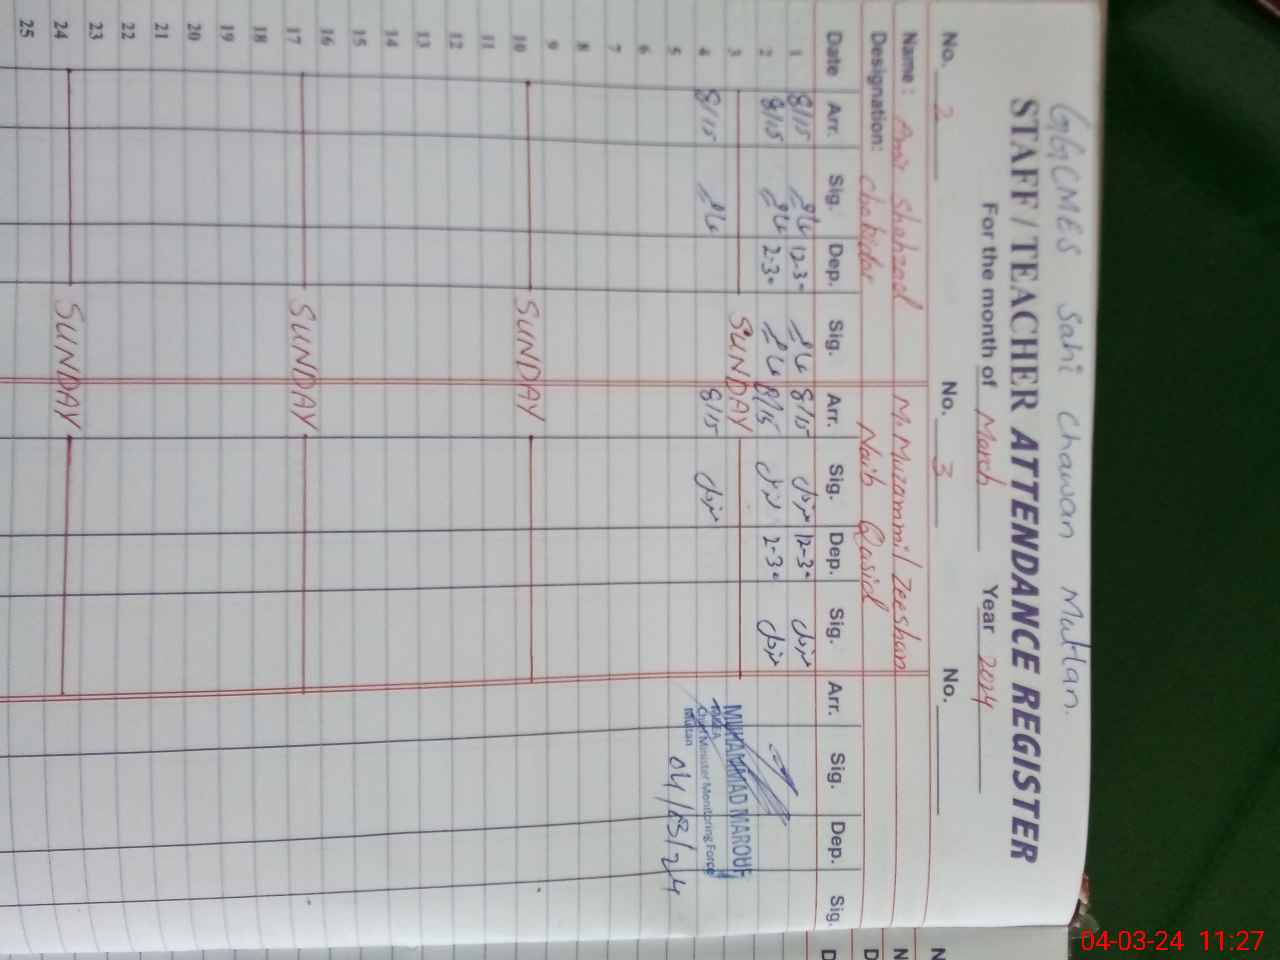 GGCMES Sahi Chawan Multan.
STAFF / TEACHER ATTENDANCE REGISTER
For the month of March Year 2024
No. 2 No. 3 No.
Name : Amir Shahzad M. Muzammil Zeeshan
Designation: Chokidar Naib Qasid
Date Arr. Sig. Dep. Sig. Arr. Sig. Dep. Sig. Arr. Sig. Dep. Sig.
1 8/15 12-30 8/15 12-30
2 8/15 2-30 8/15 2-30
3 SUNDAY
4 8/15 8/15
MUHAMMAD MAROUF
Chief Minister Monitoring Force
Multan
04/03/24
5
6
7
8
9
10 SUNDAY
11
12
13
14
15
16
17 SUNDAY
18
19
20
21
22
23
24 SUNDAY
25
04-03-24 11:27